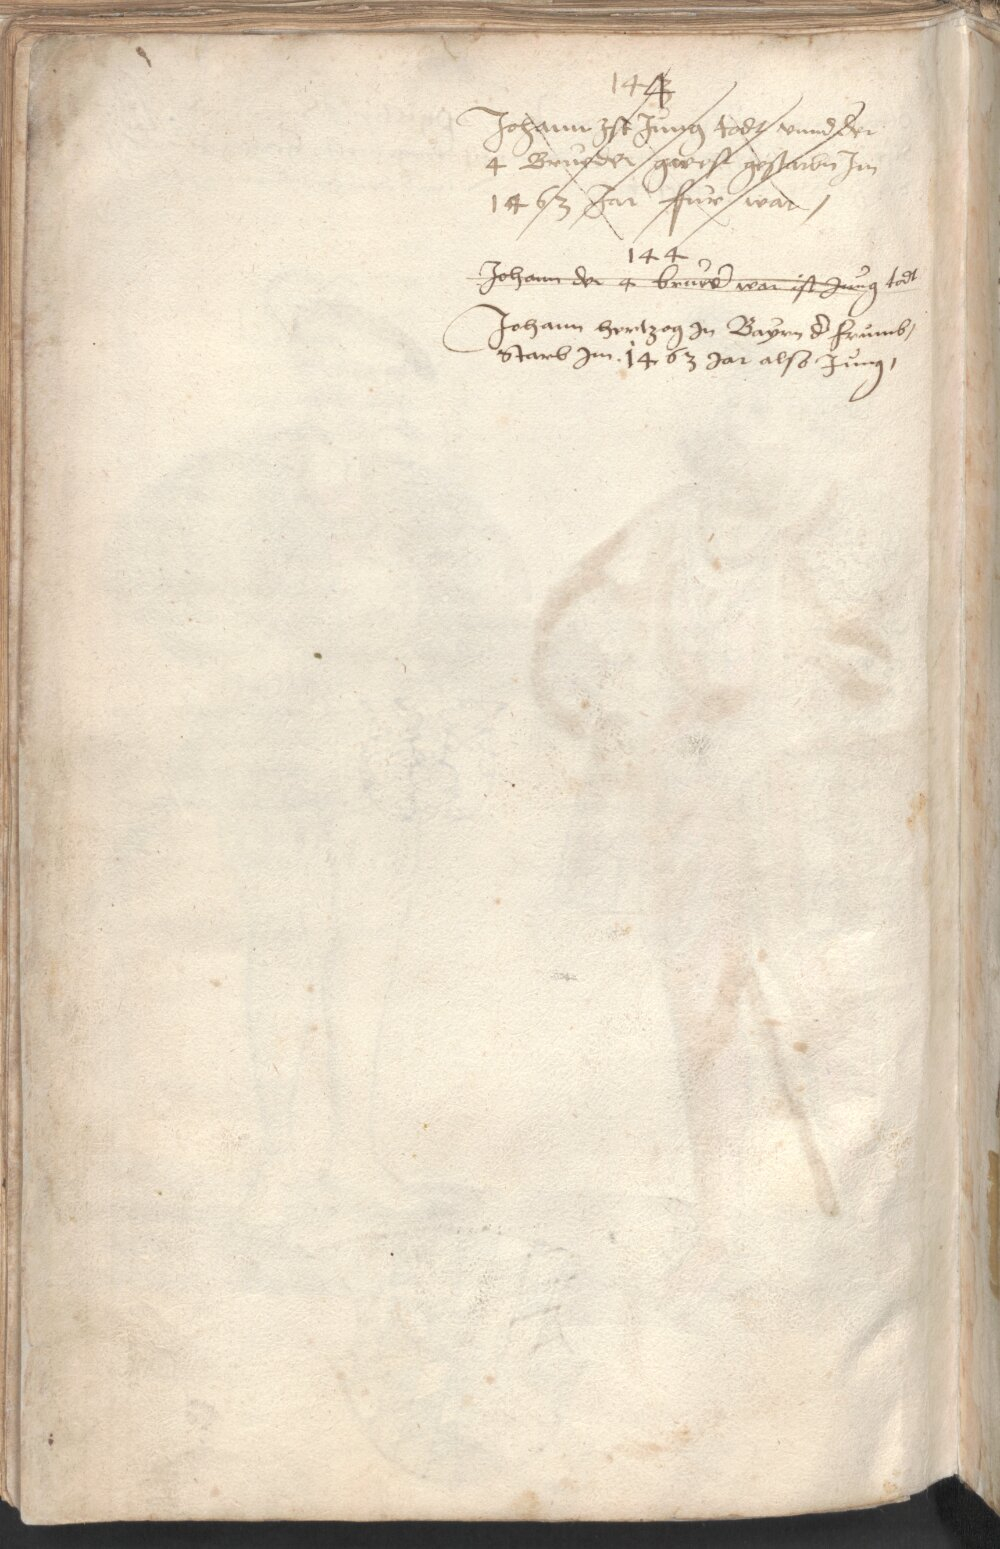 144
Johann Ist Jung todt vnnd der
4 Brueder gwest gestarbn Im
1463 Jar fur war /
144
Johann der 4 brued war ist Jung todt
Johann hertzog In Bayrn d frumb /
Starb Im 1463 Jar also Jung /